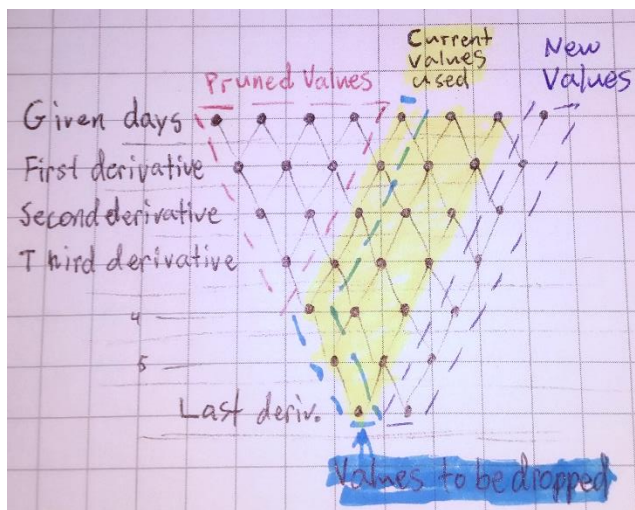 Current
values
used
New
Values
Pruned Values
Given days
First derivative
Second derivative
Third derivative
4
5
Last deriv.
Values to be dropped